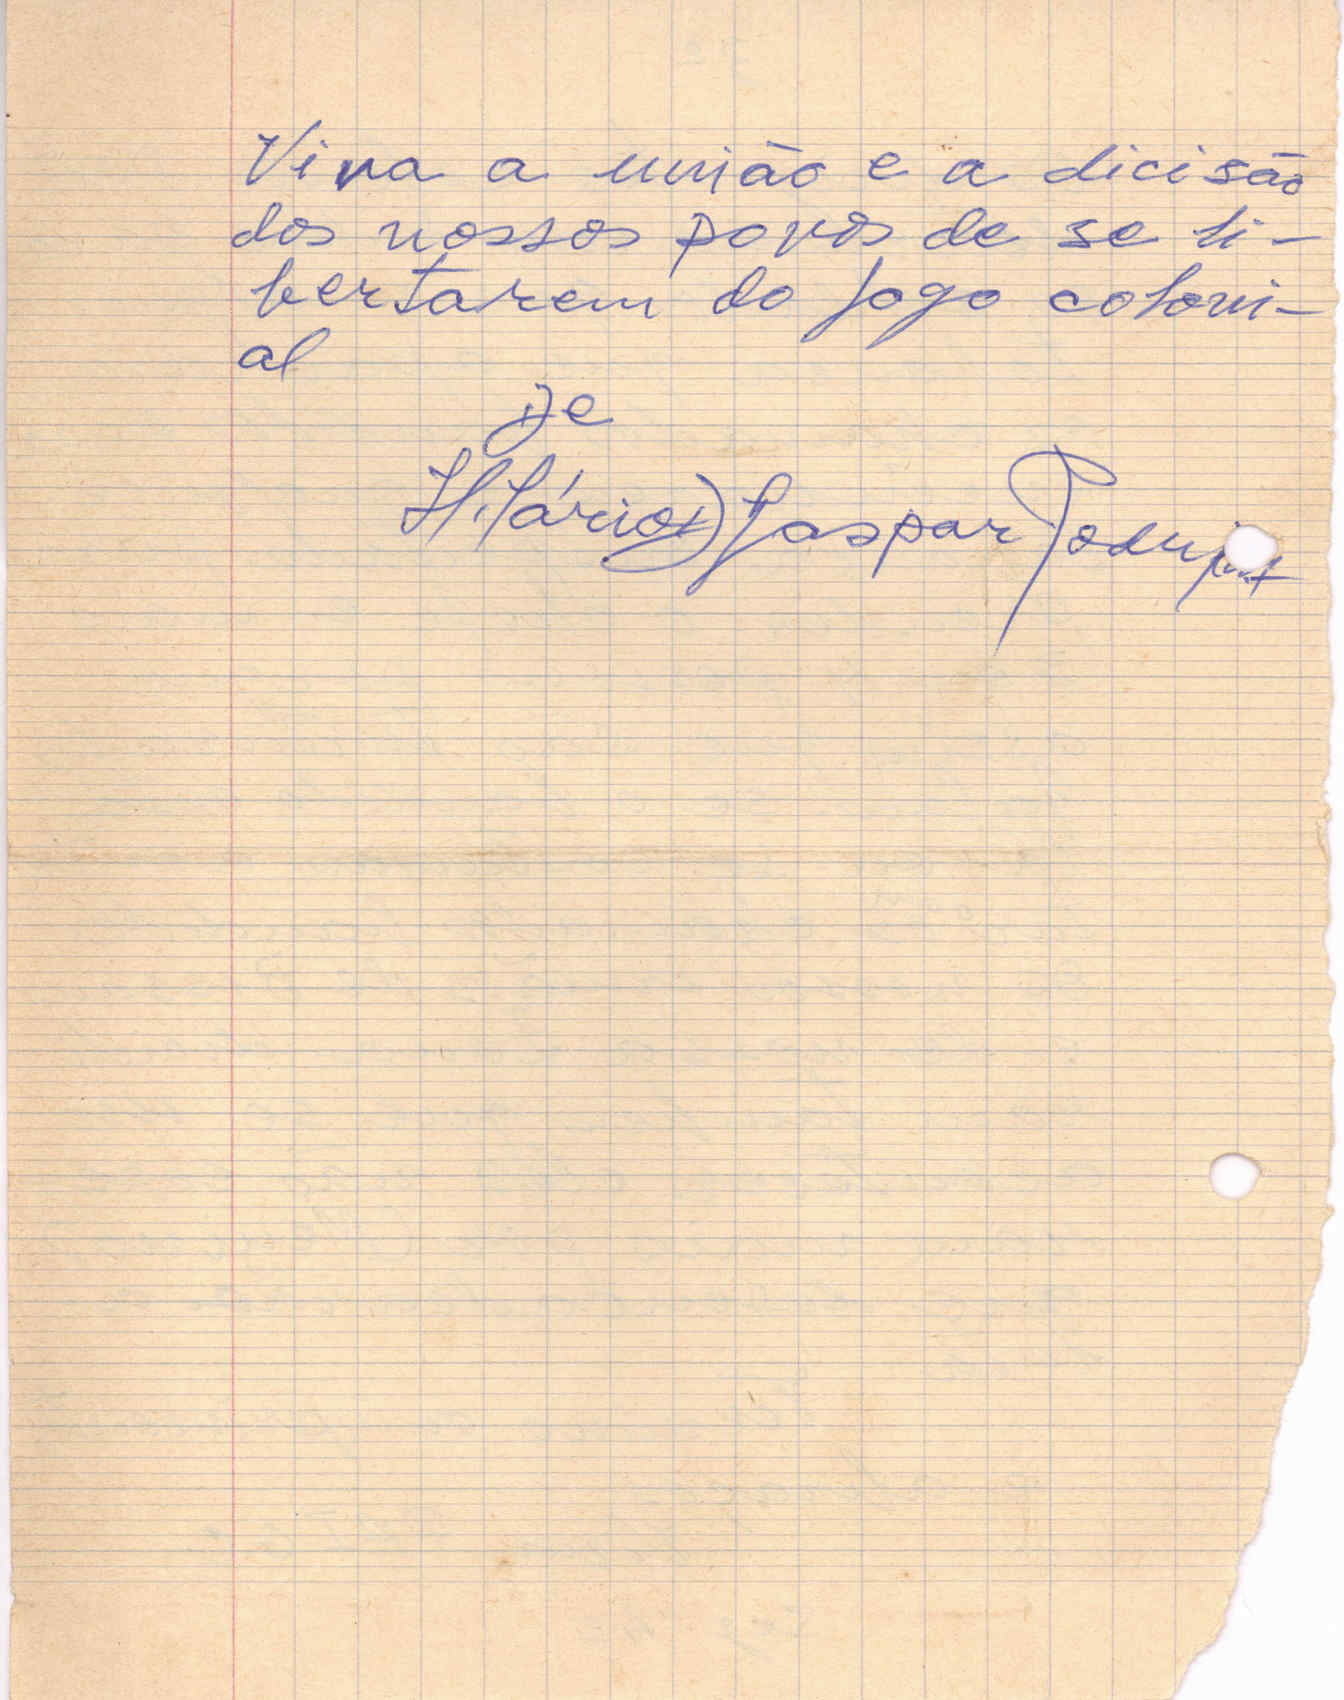 Viva a união e a dicisão
dos nossos povos de se li-
bertarem do jogo coloni-
al
De
Hilário Gaspar